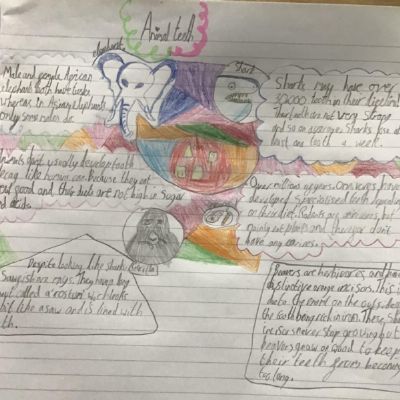 Animal teeth
elephant
Shark
Male and people African
elephants both have tusks
whereas in Asian elephants
only some males do.
Sharks may have over
30,000 teeth in their lifetime
Their teeth are not very strong
and so on average Sharks lose at
least one tooth a week.
Animals don't usually develop tooth
decay like humans can because they eat
good and their diets are not high in Sugar
and acids.
Over million of years Omnivores have
developed Specialised teeth depending
on their diet.
mainly eat plants and therefor don't
have any canines.
Gorilla
Despite looking like sharks
Sawfish are rays. They have a long
snout called a rostrum which looks
bit like a saw and is lined with
teeth.
Beavers are herbivores and have
distinctive orange incisors. This is
due to the enamel on the
the tooth being rich in iron. These
incisors never stop growing but
beavers gnaw on wood to keep
their teeth from becoming
too long.